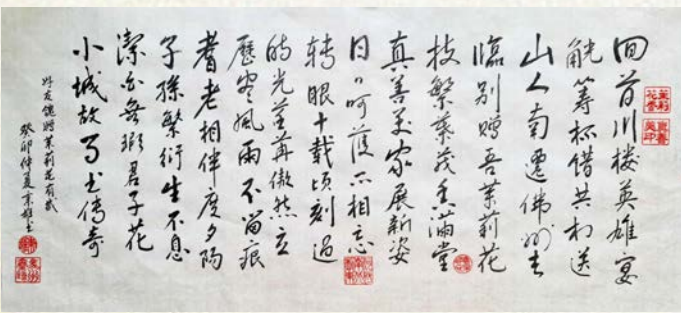 回首川楼英雄宴
觥筹杯错共相送
山人南遷佛州去
臨别赠吾茉莉花
枝繁葉茂香满堂
真善美家展新姿
日日呵護不相忘
转眼十载顷刻过
时光荏苒傲然立
歷尽風雨不留痕
耆老相伴度夕陽
子孫繁衍生不息
潔白無瑕君子花
小城故事传奇
好友馈赠茉莉花有感
癸卯仲夏